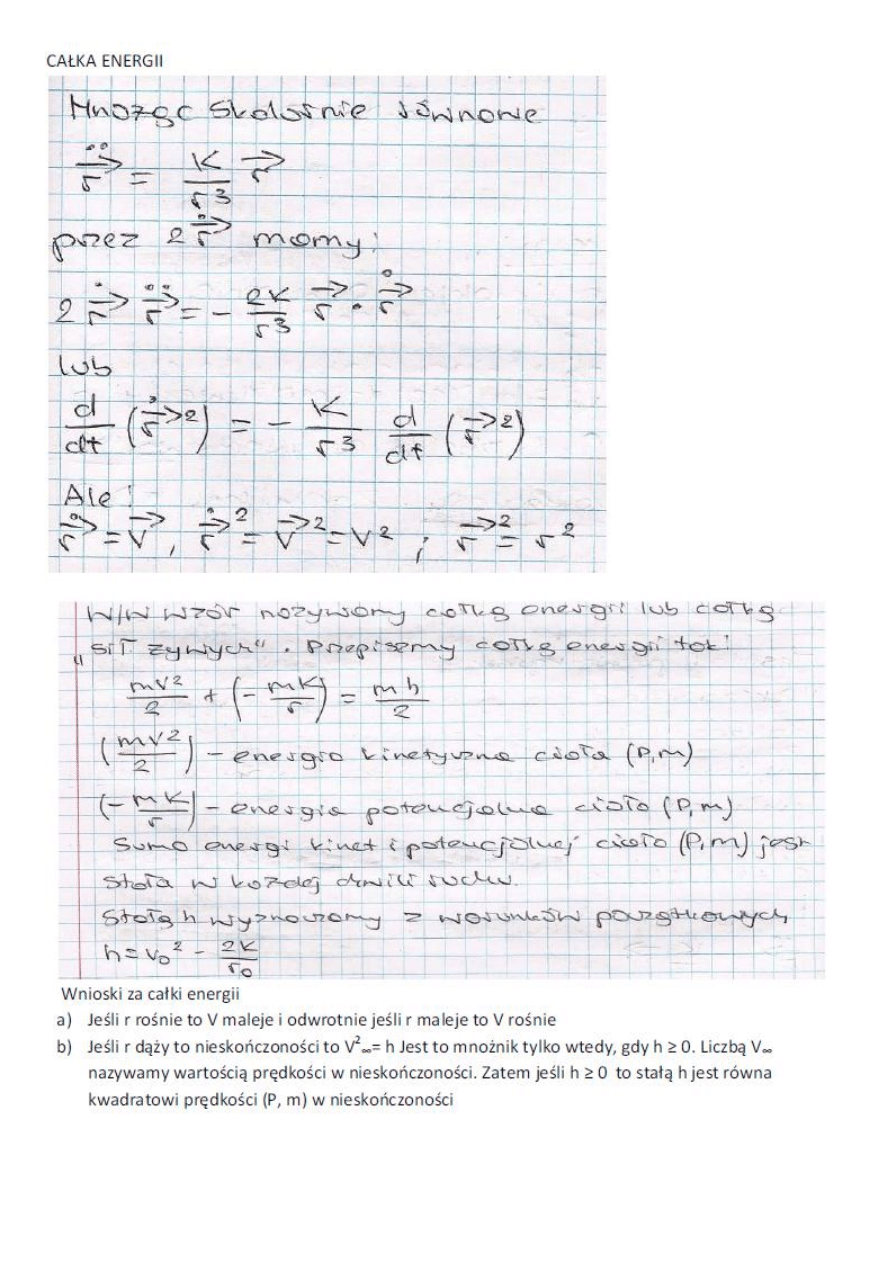 CAŁKA ENERGII
Mnożąc skalarnie równanie
$\ddot{\vec{r}} = \frac{K}{r^3} \vec{r}$
przez $2\dot{\vec{r}}$ mamy:
$2 \dot{\vec{r}} \ddot{\vec{r}} = - \frac{2K}{r^3} \vec{r} \cdot \dot{\vec{r}}$
lub
$\frac{d}{dt} (\dot{\vec{r}}^2) = - \frac{K}{r^3} \frac{d}{dt} (\vec{r}^2)$
Ale:
$\dot{\vec{r}} = \vec{V}, \dot{\vec{r}}^2 = \vec{V}^2 = V^2 ; \vec{r}^2 = r^2$
W/W wzór nazywamy całką energii lub całką
„sił żywych". Przepiszemy całkę energii tak:
$\frac{mV^2}{2} + (-\frac{mK}{r}) = \frac{mh}{2}$
$(\frac{mV^2}{2})$ - energia kinetyczna ciała (P,m)
$(-\frac{mK}{r})$ - energia potencjalna ciała (P,m)
Suma energi kinet i potencjalnej ciała (P,m) jest
stała w każdej chwili ruchu.
Stałą h wyznaczamy z warunków początkowych
$h = V_0^2 - \frac{2K}{r_0}$
Wnioski za całki energii
a) Jeśli r rośnie to V maleje i odwrotnie jeśli r maleje to V rośnie
b) Jeśli r dąży to nieskończoności to V²∞= h Jest to mnożnik tylko wtedy, gdy h ≥ 0. Liczbą V∞
nazywamy wartością prędkości w nieskończoności. Zatem jeśli h ≥ 0 to stałą h jest równa
kwadratowi prędkości (P, m) w nieskończoności